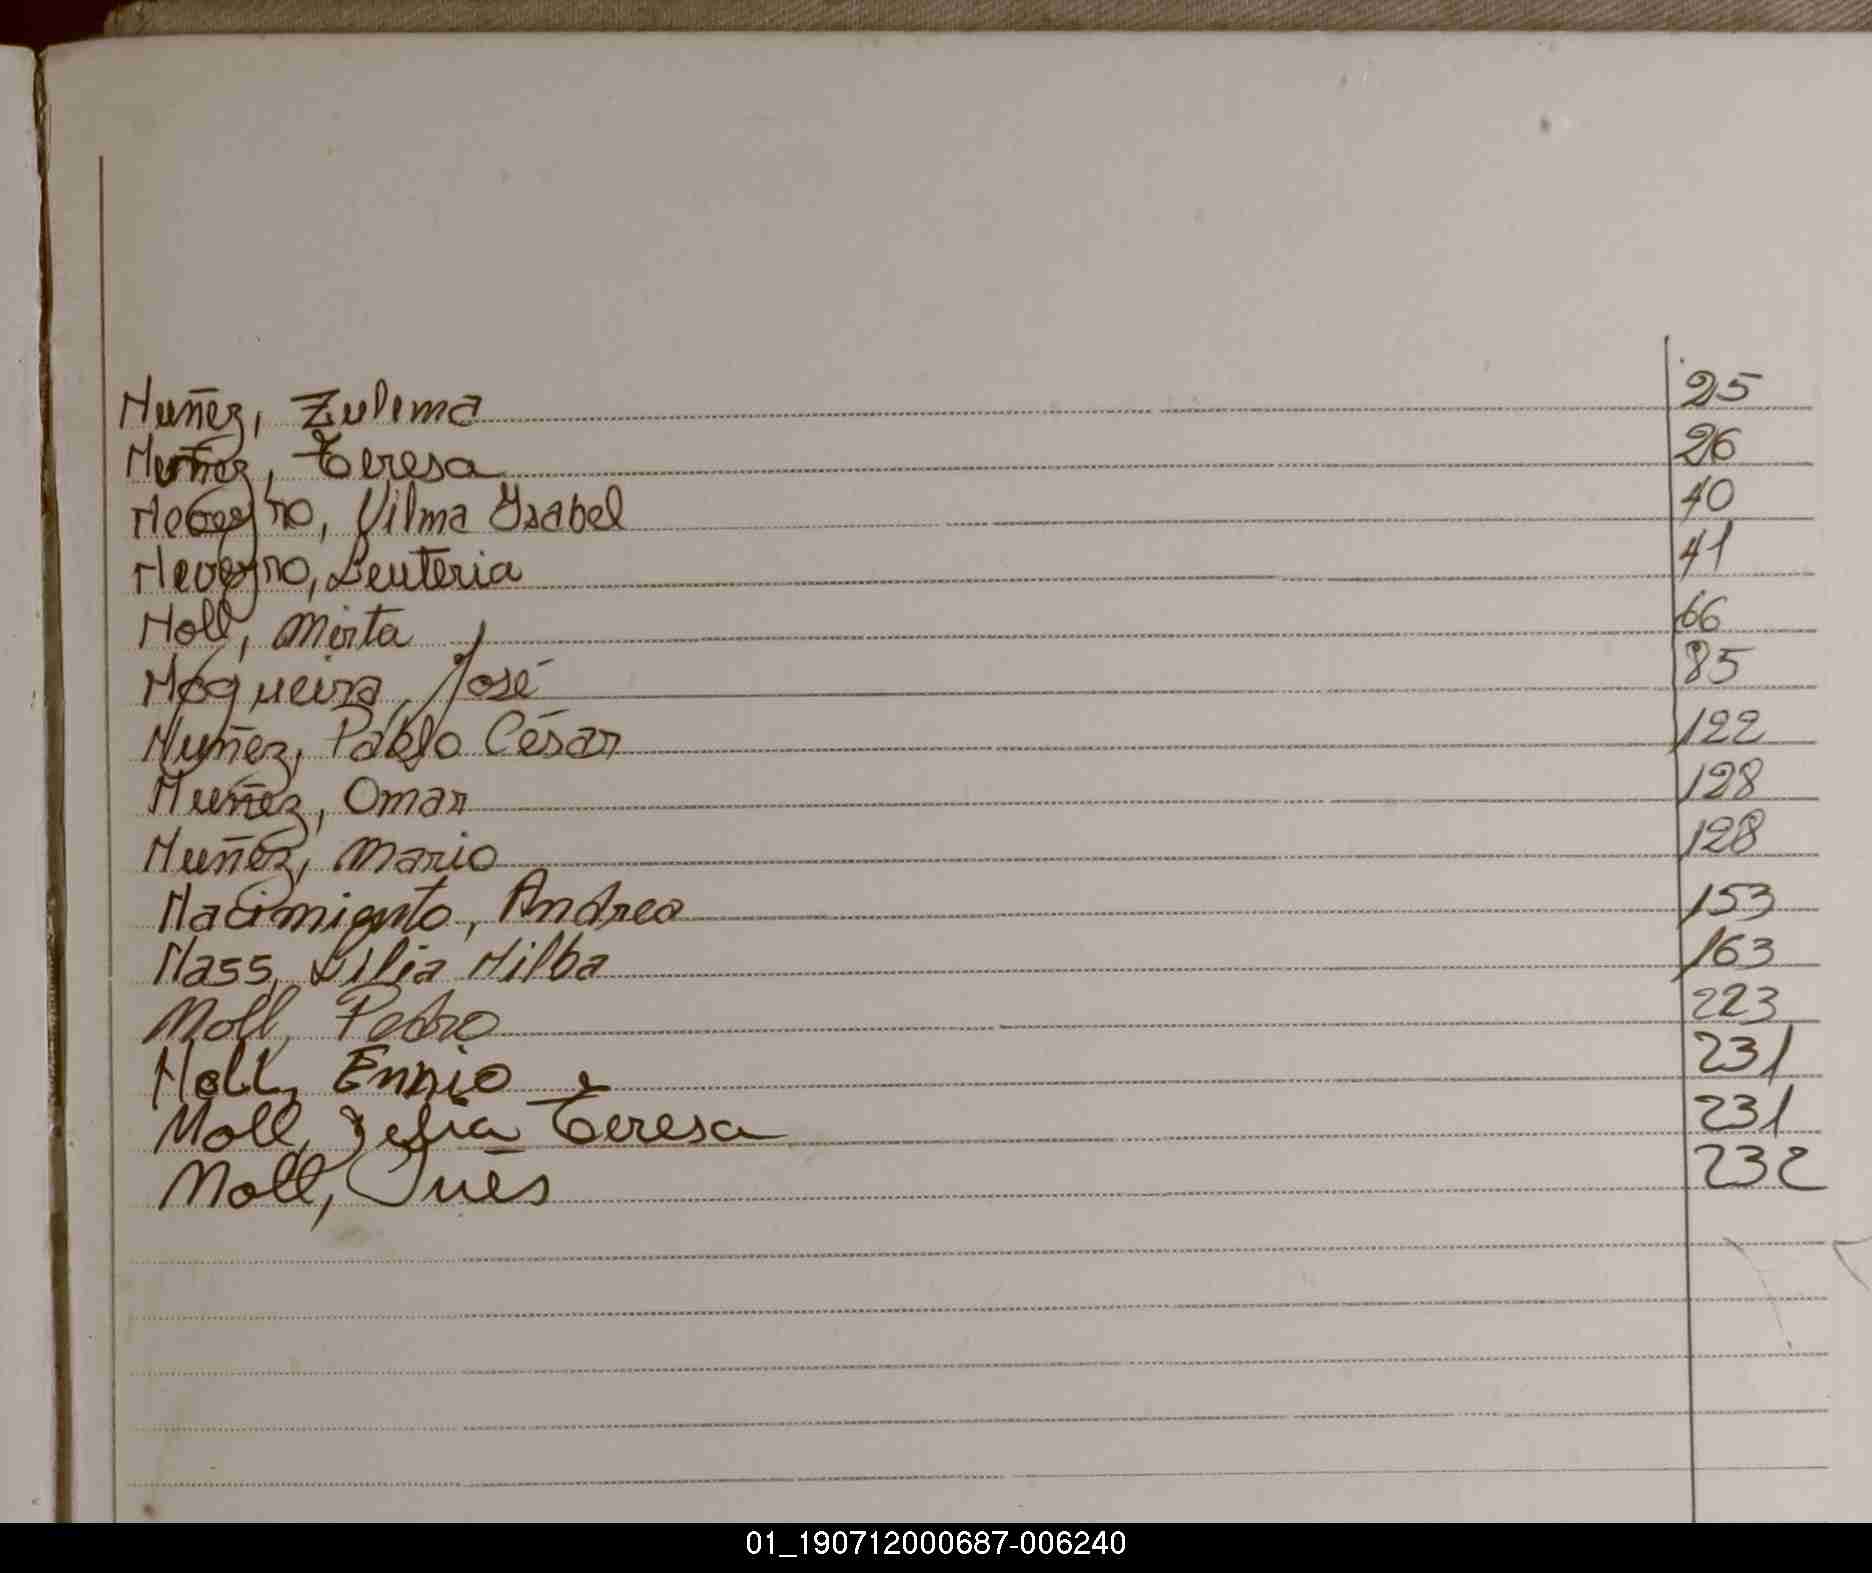 Nuñez, Zulema 25
Nuñez, Teresa 26
Vilma Ysabel 40
Leuteria 41
Noll, Mirta 66
Nogueira, José 85
Nuñez, Pablo César 122
Nuñez, Omar 128
Nuñez, Mario 128
Nacimiento, Andrea 153
Nass, Lilia Nilba 163
Noll, Pedro 223
Noll, Ennio 231
Noll, Teresa 231
Noll, Inés 232
01_190712000687-006240